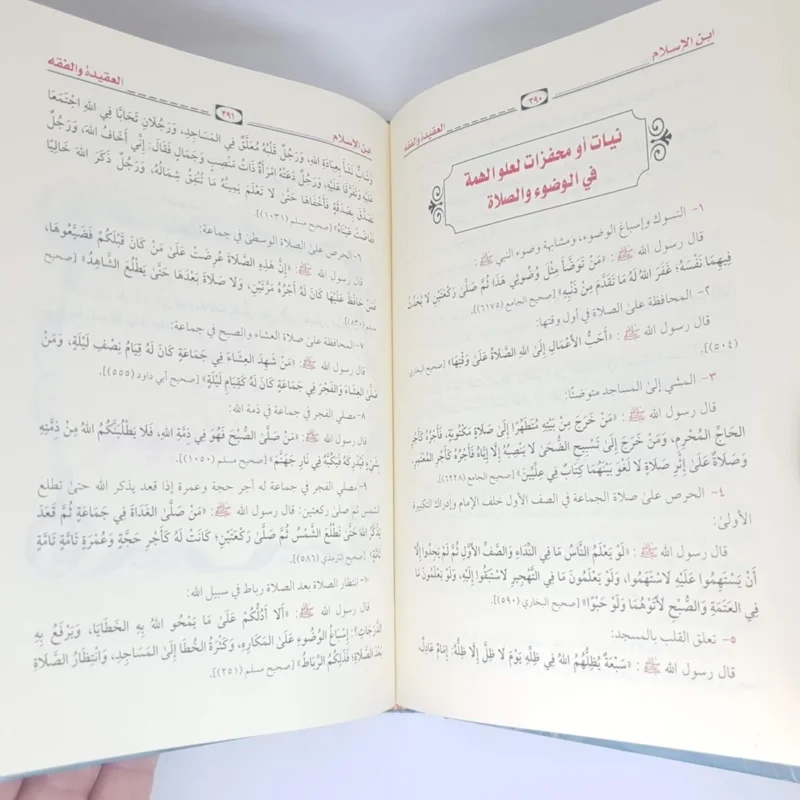 ابن الإسلام
٣٩٠
العقيدة والفقه
نيات أو محفزات لعلو الهمة
في الوضوء والصلاة
١- التسوك وإسباغ الوضوء، ومشابهة وضوء النبي ﷺ:
قال رسول الله ﷺ: «مَنْ تَوَضَّأَ مِثْلَ وُضُوئِي هَذَا ثُمَّ صَلَّى رَكْعَتَيْنِ لا يُحَدِّثُ
فِيهِمَا نَفْسَهُ؛ غَفَرَ اللهُ لَهُ مَا تَقَدَّمَ مِنْ ذَنْبِهِ» [صحيح الجامع (٦١٧٥)].
٢- المحافظة على الصلاة في أول وقتها:
قال رسول الله ﷺ: «أَحَبُّ الأَعْمَالِ إِلَى اللهِ الصَّلاةُ عَلَى وَقْتِهَا» [صحيح البخاري
(٥٠٤)].
٣- المشي إلى المساجد متوضئًا:
قال رسول الله ﷺ: «مَنْ خَرَجَ مِنْ بَيْتِهِ مُتَطَهِّرًا إِلَى صَلاةٍ مَكْتُوبَةٍ، فَأَجْرُهُ كَأَجْرِ
الحَاجِّ المُحْرِمِ، وَمَنْ خَرَجَ إِلَى تَسْبِيحِ الضُّحَى لا يَنْصِبُهُ إِلَّا إِيَّاهُ فَأَجْرُهُ كَأَجْرِ المُعْتَمِرِ،
وَصَلاةٌ عَلَى إِثْرِ صَلاةٍ لا لَغْوَ بَيْنَهُمَا كِتَابٌ فِي عِلِّيِّينَ» [صحيح الجامع (٦٢٢٨)].
٤- الحرص على صلاة الجماعة في الصف الأول خلف الإمام وإدراك التكبيرة
الأولى:
قال رسول الله ﷺ: «لَوْ يَعْلَمُ النَّاسُ مَا فِي النِّدَاءِ وَالصَّفِّ الأَوَّلِ ثُمَّ لَمْ يَجِدُوا إِلَّا
أَنْ يَسْتَهِمُوا عَلَيْهِ لاسْتَهَمُوا، وَلَوْ يَعْلَمُونَ مَا فِي التَّهْجِيرِ لاسْتَبَقُوا إِلَيْهِ، وَلَوْ يَعْلَمُونَ مَا
فِي العَتَمَةِ وَالصُّبْحِ لأَتَوْهُمَا وَلَوْ حَبْوًا» [صحيح البخاري (٥٩٠)].
٥- تعلق القلب بالمسجد:
قال رسول الله ﷺ: «سَبْعَةٌ يُظِلُّهُمُ اللهُ فِي ظِلِّهِ يَوْمَ لا ظِلَّ إِلَّا ظِلُّهُ: إِمَامٌ عَادِلٌ،
ابن الإسلام
٣٩١
العقيدة والفقه
وَشَابٌّ نَشَأَ بِعِبَادَةِ اللهِ، وَرَجُلٌ قَلْبُهُ مُعَلَّقٌ فِي المَسَاجِدِ، وَرَجُلانِ تَحَابَّا فِي اللهِ اجْتَمَعَا
عَلَيْهِ وَتَفَرَّقَا عَلَيْهِ، وَرَجُلٌ دَعَتْهُ امْرَأَةٌ ذَاتُ مَنْصِبٍ وَجَمَالٍ فَقَالَ: إِنِّي أَخَافُ اللهَ، وَرَجُلٌ
تَصَدَّقَ بِصَدَقَةٍ فَأَخْفَاهَا حَتَّى لا تَعْلَمَ يَمِينُهُ مَا تُنْفِقُ شِمَالُهُ، وَرَجُلٌ ذَكَرَ اللهَ خَالِيًا
فَفَاضَتْ عَيْنَاهُ» [صحيح مسلم (١٠٣١)].
٦- الحرص على الصلاة الوسطى في جماعة:
قال رسول الله ﷺ: «إِنَّ هَذِهِ الصَّلاةَ عُرِضَتْ عَلَى مَنْ كَانَ قَبْلَكُمْ فَضَيَّعُوهَا،
فَمَنْ حَافَظَ عَلَيْهَا كَانَ لَهُ أَجْرُهُ مَرَّتَيْنِ، وَلا صَلاةَ بَعْدَهَا حَتَّى يَطْلُعَ الشَّاهِدُ» [صحيح
مسلم (٨٣٠)].
٧- المحافظة على صلاة العشاء والصبح في جماعة:
قال رسول الله ﷺ: «مَنْ شَهِدَ العِشَاءَ فِي جَمَاعَةٍ كَانَ لَهُ قِيَامُ نِصْفِ لَيْلَةٍ، وَمَنْ
صَلَّى العِشَاءَ وَالفَجْرَ فِي جَمَاعَةٍ كَانَ لَهُ كَقِيَامِ لَيْلَةٍ» [صحيح أبي داود (٥٥٥)].
٨- مصلي الفجر في جماعة في ذمة الله:
قال رسول الله ﷺ: «مَنْ صَلَّى الصُّبْحَ فَهُوَ فِي ذِمَّةِ اللهِ، فَلا يَطْلُبَنَّكُمُ اللهُ مِنْ ذِمَّتِهِ
بِشَيْءٍ فَيُدْرِكَهُ فَيَكُبَّهُ فِي نَارِ جَهَنَّمَ» [صحيح مسلم (١٠٥٠)].
٩- مصلي الفجر في جماعة له أجر حجة وعمرة إذا قعد يذكر الله حتى تطلع
الشمس ثم صلى ركعتين: قال رسول الله ﷺ: «مَنْ صَلَّى الغَدَاةَ فِي جَمَاعَةٍ ثُمَّ قَعَدَ
يَذْكُرُ اللهَ حَتَّى تَطْلُعَ الشَّمْسُ ثُمَّ صَلَّى رَكْعَتَيْنِ؛ كَانَتْ لَهُ كَأَجْرِ حَجَّةٍ وَعُمْرَةٍ تَامَّةٍ تَامَّةٍ
تَامَّةٍ» [صحيح الترمذي (٥٨٦)].
١٠- انتظار الصلاة بعد الصلاة رباط في سبيل الله:
قال رسول الله ﷺ: «أَلا أَدُلُّكُمْ عَلَى مَا يَمْحُو اللهُ بِهِ الخَطَايَا، وَيَرْفَعُ بِهِ
الدَّرَجَاتِ؟: إِسْبَاغُ الوُضُوءِ عَلَى المَكَارِهِ، وَكَثْرَةُ الخُطَا إِلَى المَسَاجِدِ، وَانْتِظَارُ الصَّلاةِ
بَعْدَ الصَّلاةِ؛ فَذَلِكُمُ الرِّبَاطُ» [صحيح مسلم (٢٥١)].